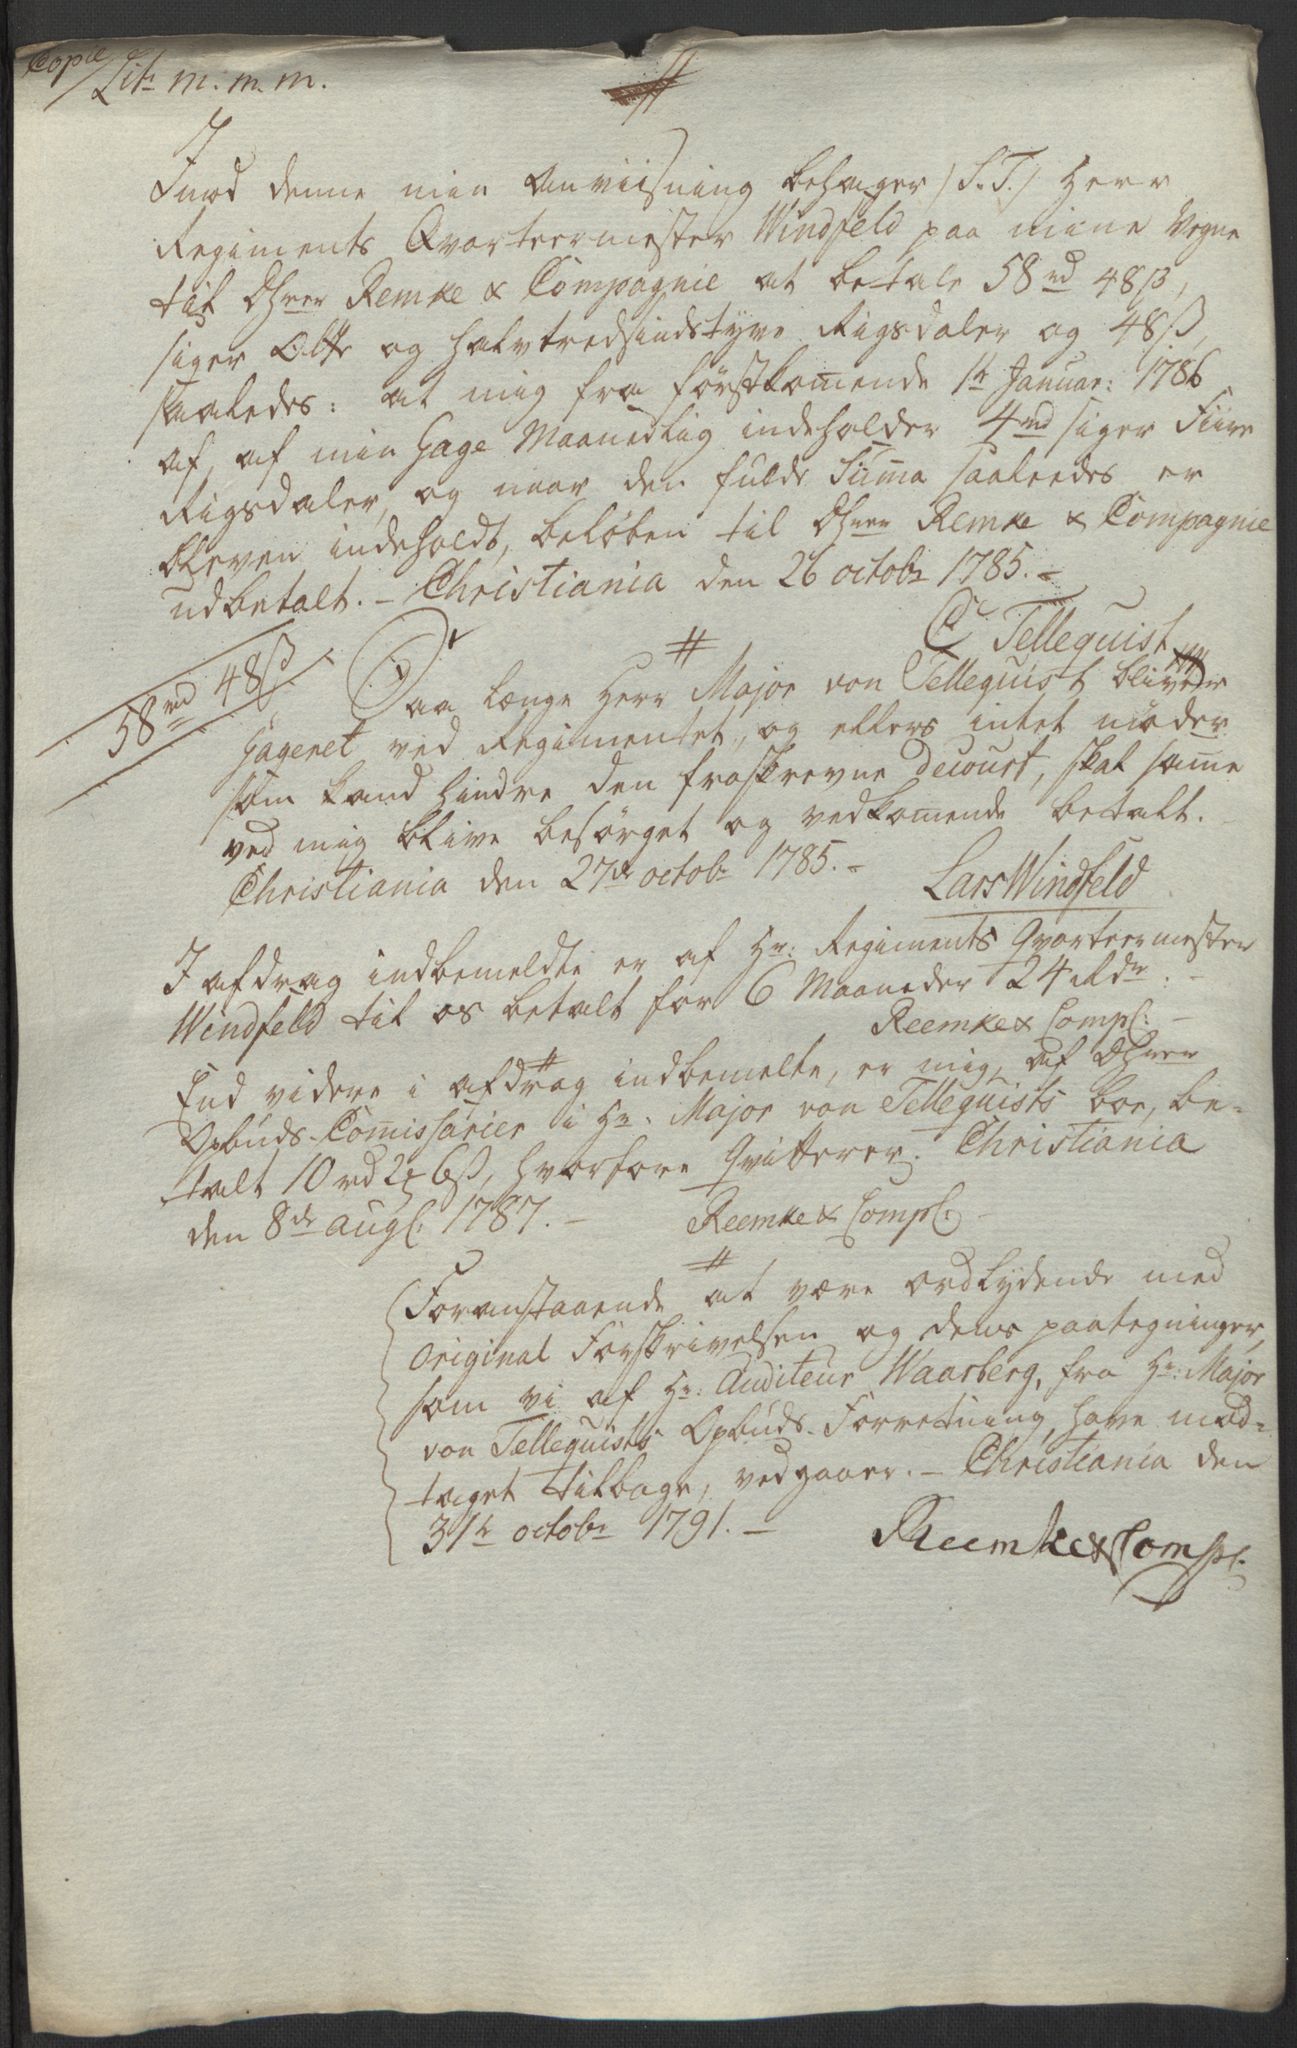 Copie
Litr m. m. m.
Imod denne min Anviisning behager /S. T./ Herr
Regiments Qvarteermester Windfeld paa mine Vegne
til Dhrer Remke & Compagnie at betale 58 rd 48 ß,
siger Otte og halvtredsindstyve Rigsdaler og 48 ß,
saaledes: at mig fra førstkomende 1te Januar: 1786
af, af min Gage Maanedlig indeholder 4 rd siger Fiire
Rigsdaler, og naar den fulde Suma saaleedes er
bleven indeholdt, beløben til Dhrer Remke & Compagnie
udbetalt. – Christiania den 26 octobr 1785. –
C Tellequist
58 rd 48 ß
Saa længe Herr Major von Tellequist bliver
Gageret ved Regimentet, og ellers intet møder
som kand hindre den froskrevne decourt, skal same
ved mig blive besørget og vedkomende betalt.
Christiania den 27de octobr 1785. –
Lars Windfeld
I afdrag indbemeldte er af Hr: Regiments Qvarteermester
Windfeld til os betalt for 6 Maaneder 24 Rdr. –
Reemke & Comp:
End videre i afdrag indbemelte, er mig, af Dhrer
Opbuds-Comissarier i Hr. Major von Tellequists boe, be-
talt 10 rd 2 ƶ 6 ß, hvorfore Qvitterer. Christiania
den 8de aug: 1787. –
Reemke & Comp:
Foranstaaende at være ordlydende med
Original Forskrivelsen og dens paategninger,
som vi af Hr. Auditeur Waarberg, fra Hr: Major
von Tellequists Opbuds-Forretning, have mod-
taget tilbage, vedgaaer. – Christiania den
31te octobr 1791. –
Reemke & Comp: